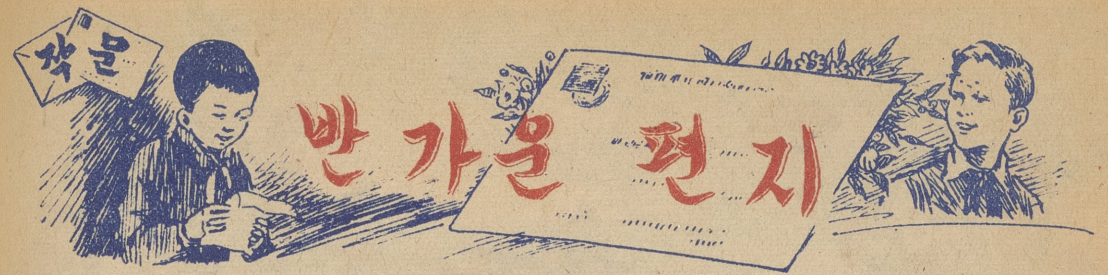 작문
반가운 편지